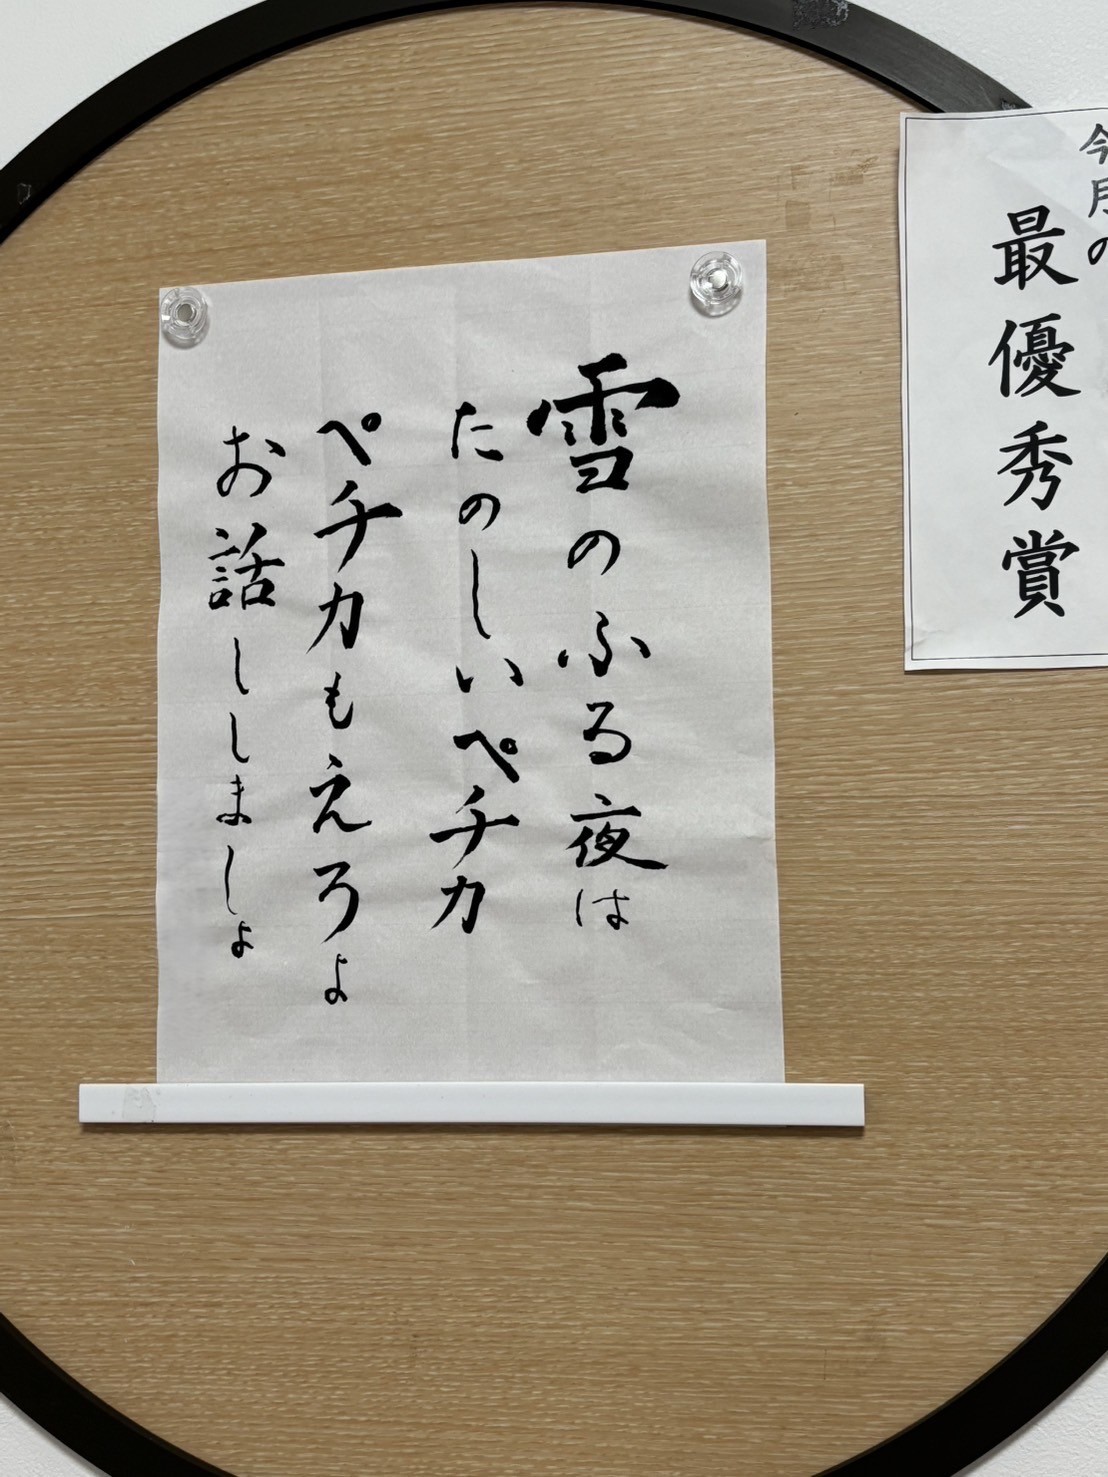 今月の
最優秀賞
雪のふる夜は
たのしいペチカ
ペチカもえろよ
お話ししましょ